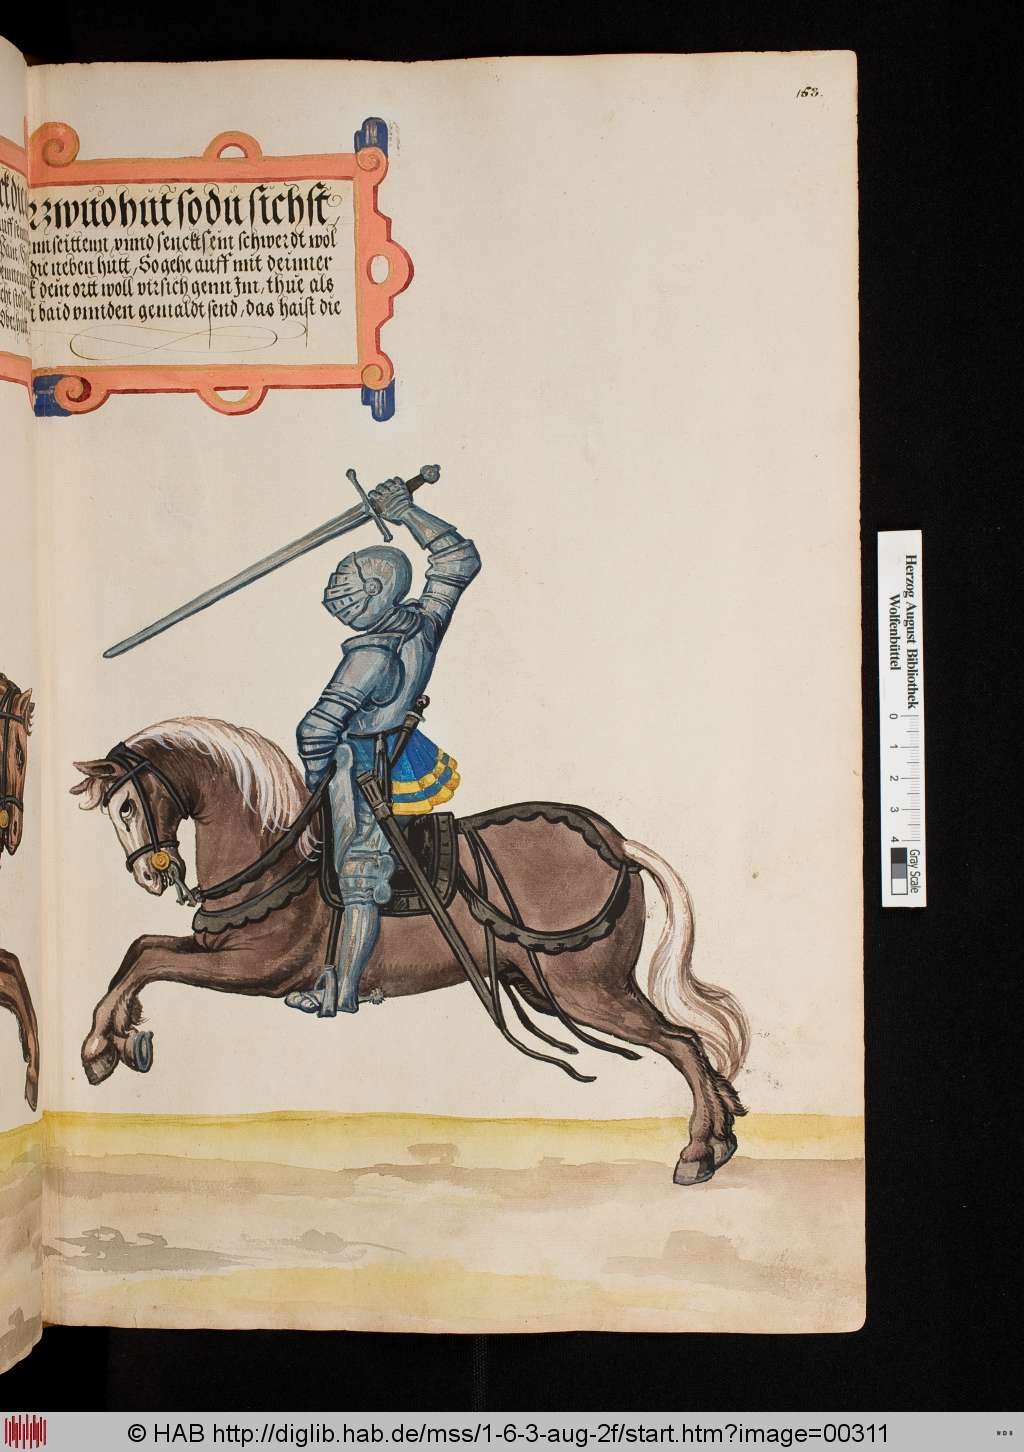 158.
zwuo hut so du sichst
seittenn, vnnd senckt sein schwerdt wol
die neben hutt, So gehe auff mit deinner
dem ortt woll virsich genn Im, thue als
baid vnnden gemaldt send, das haist die
Herzog August Bibliothek
Wolfenbüttel
0 1 2 3 4
Gray Scale
© HAB http://diglib.hab.de/mss/1-6-3-aug-2f/start.htm?image=00311